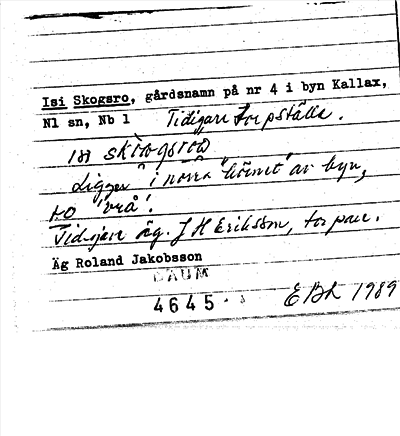 Isi Skogsro, gårdsnamn på nr 4 i byn Kallax,
Nl sn, Nb l Tidigare torpställe.
Ligger i norra "hörnet" av byn,
ro 'vrå'.
Tidigare äg. J H Eriksson, torpare.
Äg Roland Jakobsson
DAUM
4645
E Bh 1989